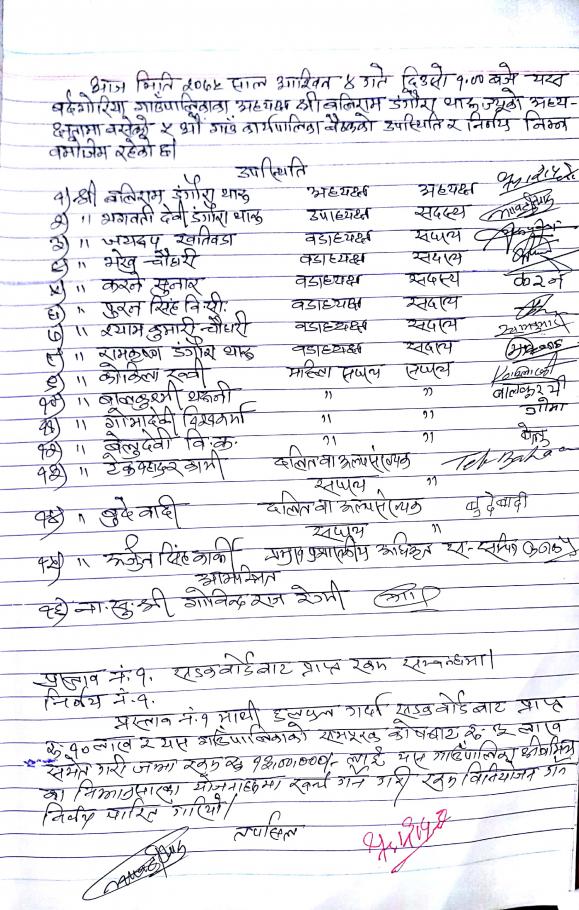 आज मिति २०७५ साल आश्विन ४ गते दिउसो १.०० बजे यस
बर्दगोरिया गाउँपालिकाका अध्यक्ष श्री बलिराम डंगौरा थारु ज्यूको अध्य-
क्षतामा बसेको ५ औं गाउँ कार्यपालिका बैठकको उपस्थिति र निर्णय निम्न
बमोजिम रहेको छ।
उपस्थिति
१) श्री बलिराम डंगौरा थारु अध्यक्ष अध्यक्ष
२) " भगवती देवी डंगौरा थारु उपाध्यक्ष सदस्य
३) " जयदेव खतिवडा वडाध्यक्ष सदस्य
४) " भेखु चौधरी वडाध्यक्ष सदस्य
५) " करने सुनार वडाध्यक्ष सदस्य करने
६) " पुरन सिंह वि.सी. वडाध्यक्ष सदस्य
७) " श्याम कुमारी चौधरी वडाध्यक्ष सदस्य
८) " रामकृष्ण डंगौरा थारु वडाध्यक्ष सदस्य
९) " कोकिला रुची महिला सदस्य सदस्य
१०) " बालकुश्मी थरुनी " " बालकुश्मी
११) " गोमादेवी विश्वकर्मा " " गोमा
१२) " बेलुदेवी वि.क. " " बेलु
१३) " टेकबहादुर कामी दलित वा अल्पसंख्यक Tek Bahadur
सदस्य "
१४) " बुदे वादी दलित वा अल्पसंख्यक बुदेवादी
सदस्य "
१५) " अर्जुन सिंह कार्की प्रमुख प्रशासकीय अधिकृत स-सचिव
आमन्त्रित
१६) ना.सु. श्री गोविन्द राज रेग्मी
प्रस्ताव नं. १. सडकबोर्डबाट प्राप्त रकम सम्बन्धमा।
निर्णय नं. १.
प्रस्ताव नं. १ माथी छलफल गर्दा सडकबोर्डबाट प्राप्त
रु १० लाख र यस गाउँपालिकाको समपुरक कोषबाट रु ५ लाख
समेत गरी जम्मा रकम रु १५,००,०००/- लाई यस गाउँपालिका
का निम्नानुसारका योजनाहरुमा खर्च गर्ने गरी रकम विनियोजन गर्न
निर्णय पारित गरियो।
तपसिल